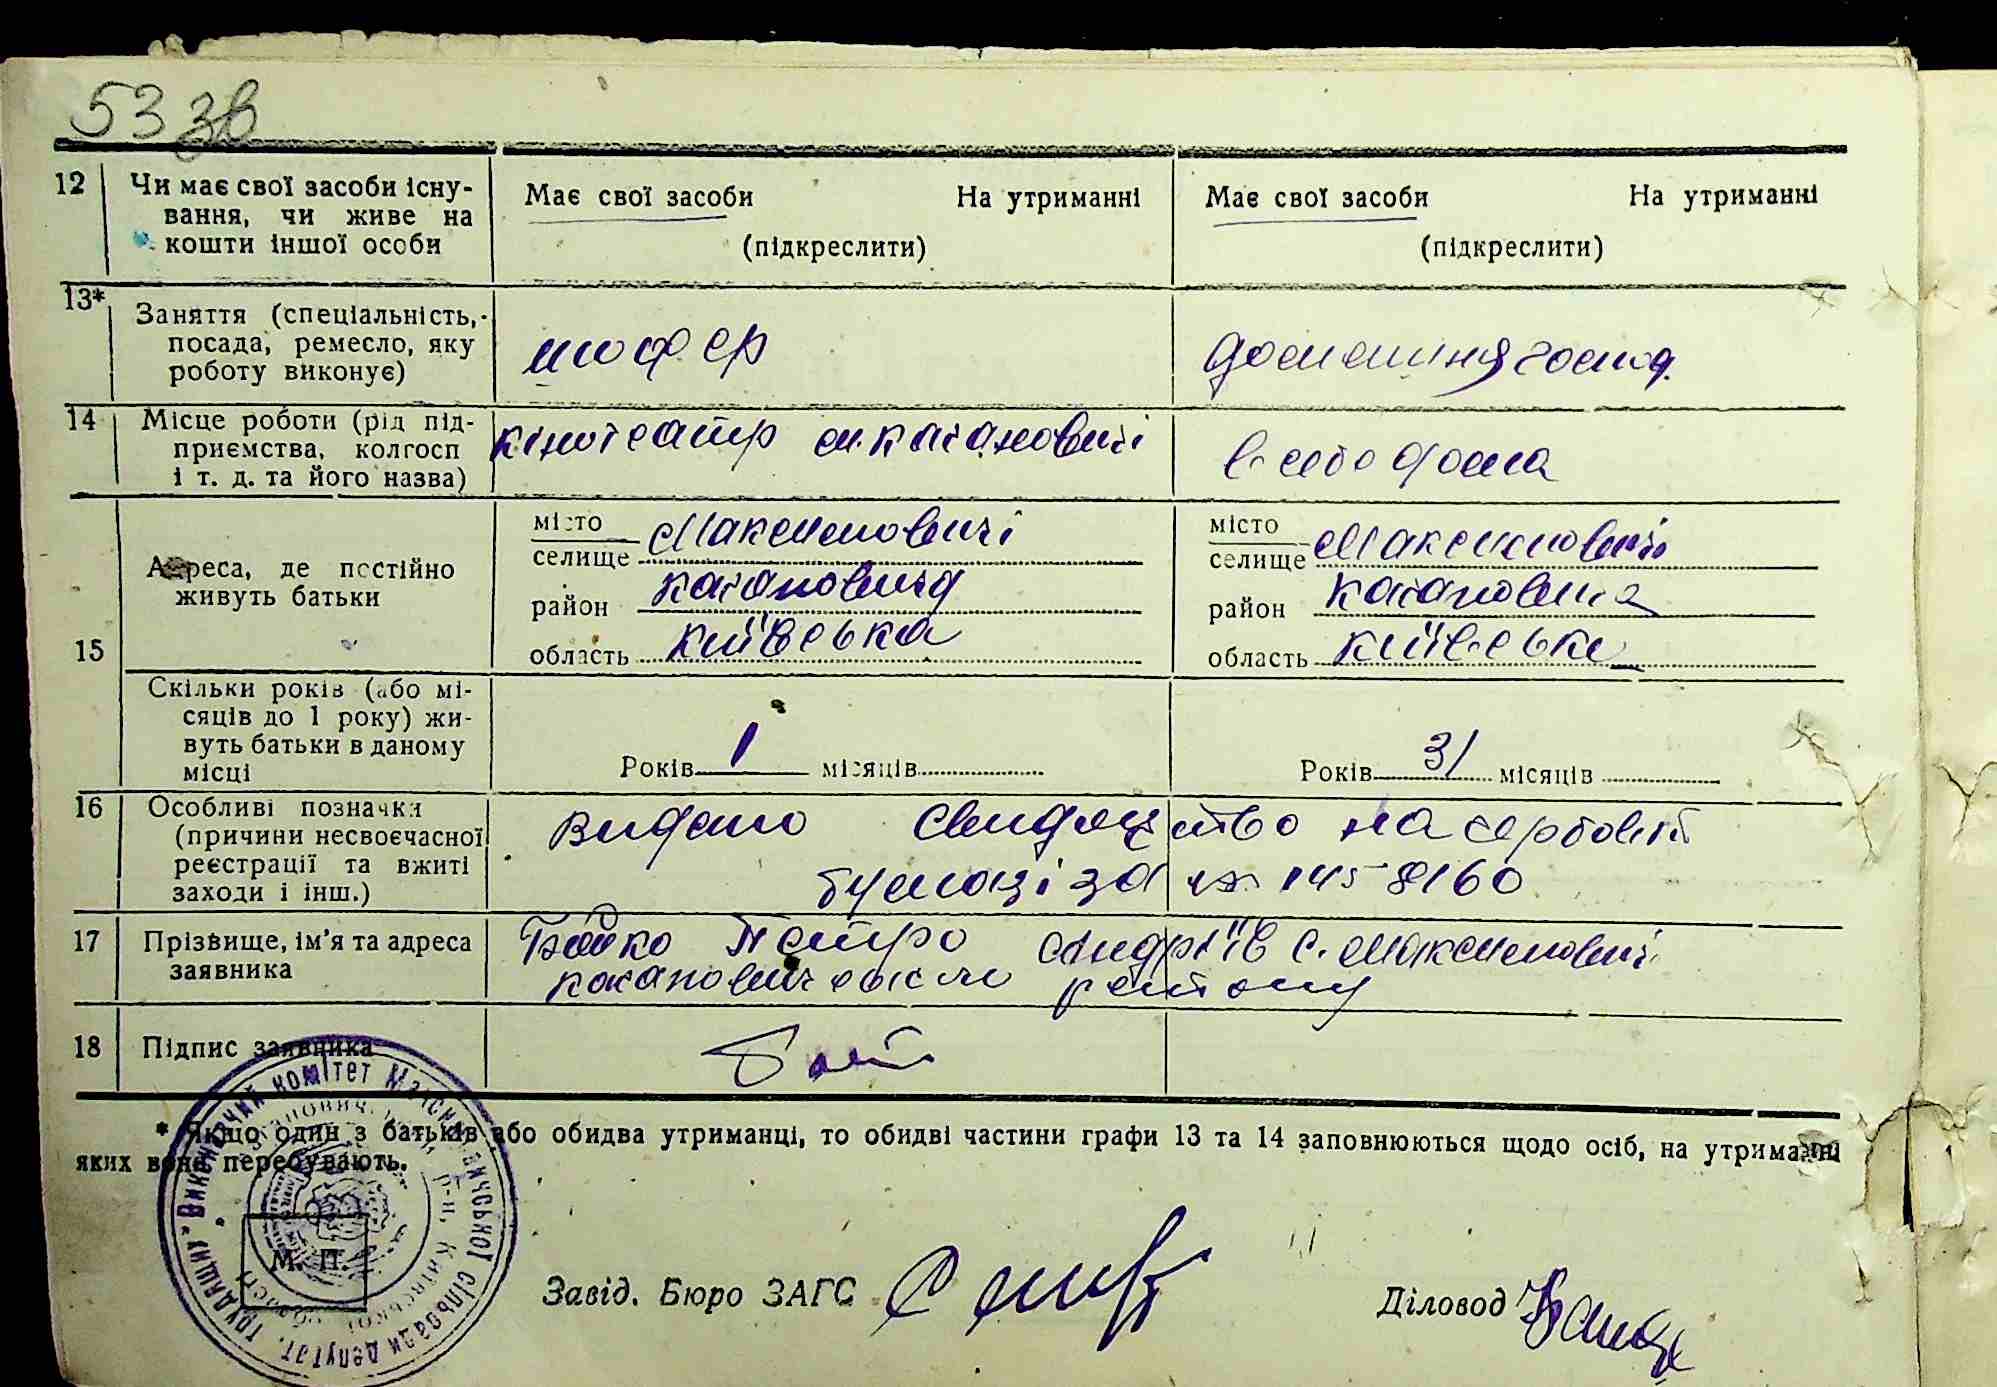 53 зв
12 Чи має свої засоби існу-
вання, чи живе на
кошти іншої особи
Має свої засоби На утриманні
(підкреслити)
Має свої засоби На утриманні
(підкреслити)
13* Заняття (спеціальність,
посада, ремесло, яку
роботу виконує)
шофер
домашня господ.
14 Місце роботи (рід під-
приємства, колгосп
і т. д. та його назва)
кінотеатр м. Кагановичі
в себе дома
15 Адреса, де постійно
живуть батьки
місто
селище Максимовичі
район Кагановича
область Київська
місто
селище Максимовичі
район Кагановича
область Київська
Скільки років (або мі-
сяців до 1 року) жи-
вуть батьки в даному
місці
Років 1 місяців
Років 31 місяців
16 Особливі позначки
(причини несвоєчасної
реєстрації та вжиті
заходи і інш.)
видано свидоцтво на гербовій
бумазі за № 1458160
17 Прізвище, ім'я та адреса
заявника
Бойко Петро Андріїв с. Максимовичі
кагановичського району
18 Підпис заявника
* Якщо один з батьків або обидва утриманці, то обидві частини графи 13 та 14 заповнюються щодо осіб, на утриманні
яких вони перебувають.
Виконавчий комітет Максимовичської сільради депутат. трудящих
Кагановичський р-н, Київської області
М. П.
Завід. Бюро ЗАГС
Діловод